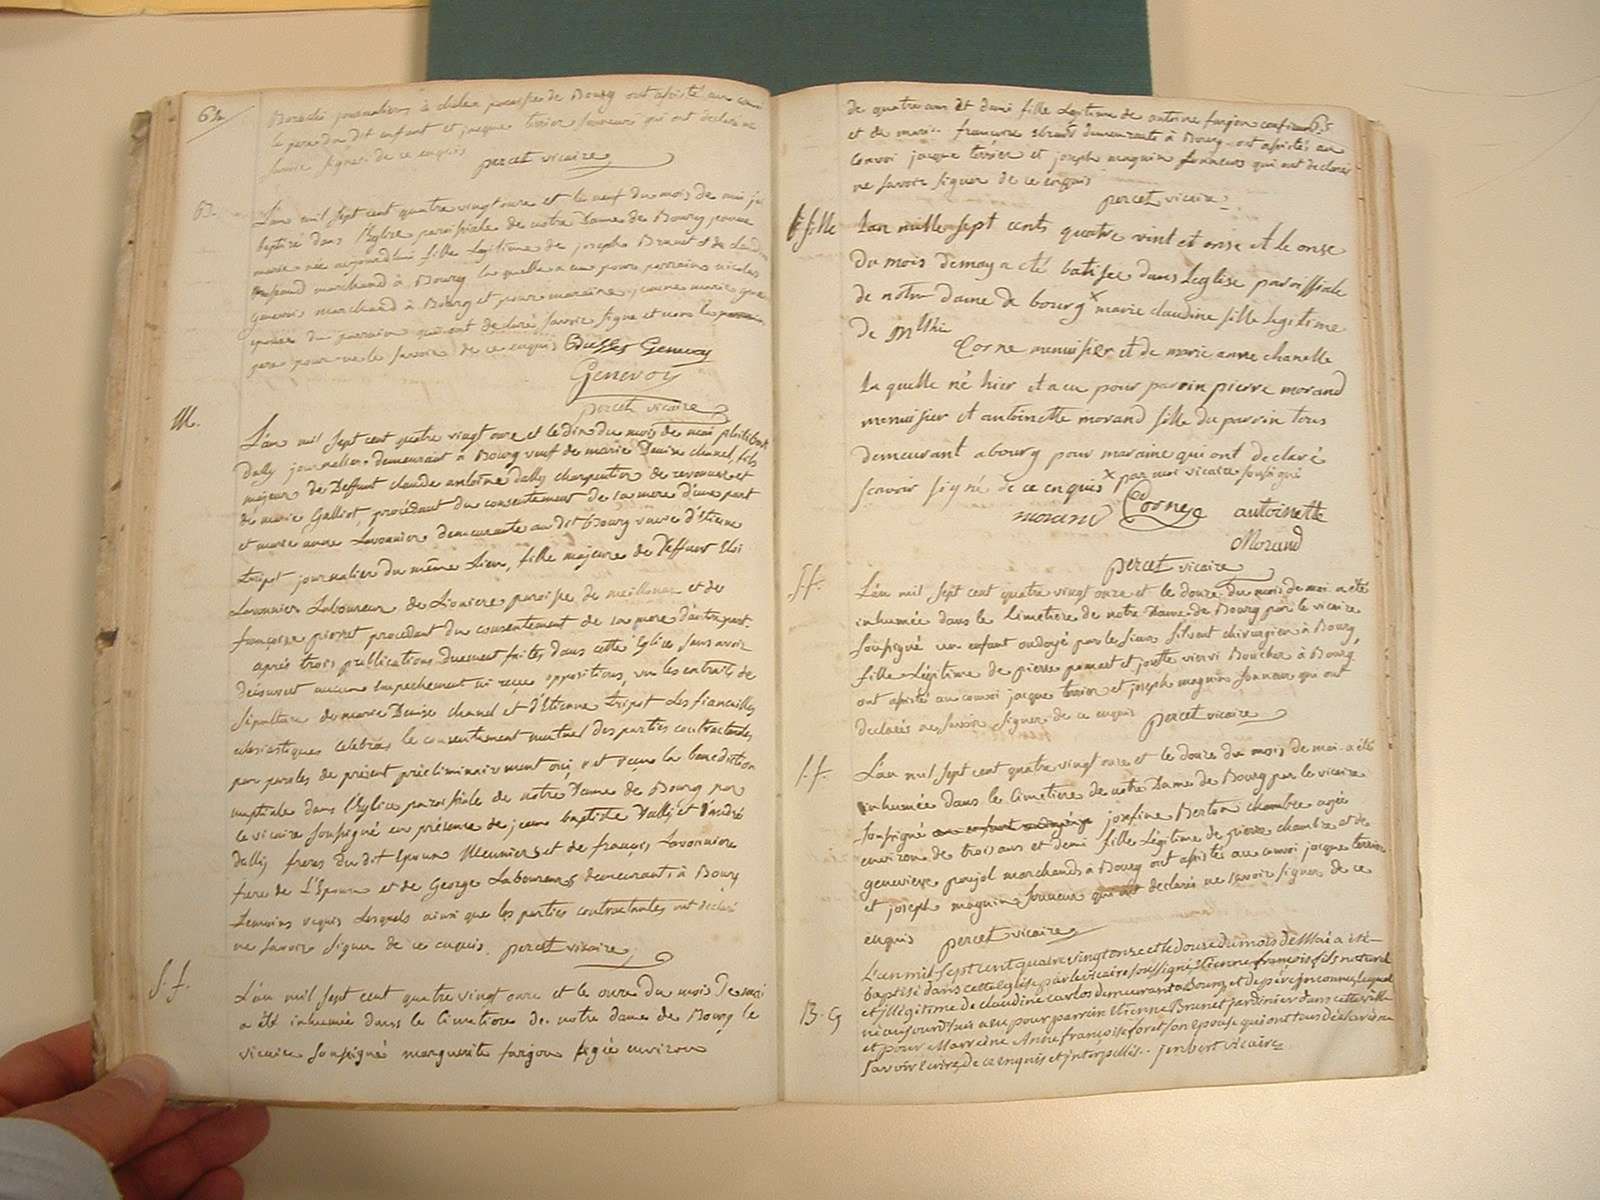 64
journalier à paroisse de Bourg ont assisté au convoi
le pere du dit enfant et jacque terrier sonneurs qui ont déclaré ne
savoir signer de ce enquis percet vicaire
B.
L'an mil sept cent quatre vingt onze et le neuf du mois de mai j'ai
baptizé dans l'Eglise paroissiale de notre Dame de Bourg
marie née aujourdhui fille légitime de joseph Brunet et de
marchand à Bourg la quelle a eu pour parrain nicolas
genevoi marchand à Bourg et pour maraine jeanne marie
épouse du parrain qui ont déclaré savoir signe et non le
pere pour ne le savoir de ce enquis Genevoy
Genevoy
percet vicaire
M.
L'an mil sept cent quatre vingt onze et le dix du mois de mai philibert
Dally journalier demeurant à Bourg veuf de marie Denise chanel, fils
majeur de Deffunt claude antoine dally charpentier de revonnas et
de marie Galliot, procédant du consentement de sa mere d'une part
et marie anne Lavonnier demeurante au dit Bourg veuve d'Etienne
tripot journalier du même Lieu, fille majeure de Deffunt Eloi
Lavonnier Laboureur de Lioniere paroisse de meillonas et de
françoise pierret procédant du consentement de sa mere d'autre part.
après trois publications duement faites dans cette Eglise sans avoir
découvert aucun empechement ni reçu oppositions, vu les extraits de
sépulture de marie Denise chanel et d'Etienne tripot les fiancailles
eclesiastiques celebrées le consentement mutuel des parties contractantes
par paroles de présent préeliminairement oui, ont reçu la benediction
nuptiale dans l'Eglise paroissiale de notre Dame de Bourg par
le vicaire soussigné en présence de jean baptiste Dally et d'andré
dally freres du dit Epoux Meuniers et de françois Lavonniere
frere de L'Epouse et de George Laboureurs demeurants à Bourg
temoins requis lesquels ainsi que les parties contractantes ont déclaré
ne savoir signer de ce enquis. percet vicaire
S. f.
L'an mil sept cent quatre vingt onze et le onze du mois de mai
a été inhumée dans le cimetiere de notre dame de Bourg le
vicaire soussigné marguerite farjon agée environ
65
de quatre ans et demi fille légitime de antoine farjon
et de marie françoise demeurants à Bourg ont assistés au
convoi jacque terrier et joseph magnin sonneurs qui ont déclarés
ne savoir signer de ce enquis
percet vicaire
B fille
Lan mille sept cents quatre vint et onse et le onse
du mois demay a été batisee dans Leglise paroissiale
de notre dame de bourg x marie claudine fille legitime
de Mthie
Corne menuisier et de marie anne chanelle
La quelle né hier et a eu pour paroin pierre morand
menuisier et antoinette morand fille du paroin tous
demeurant a bourg pour maraine qui ont declaré
scavoir signé de ce enquis x par moi vicaire soussigné
morand Corne antoinette
Morand
percet vicaire
S. f.
L'an mil sept cent quatre vingt onze et le douze du mois de mai a été
inhumée dans le Cimetiere de notre Dame de Bourg par le vicaire
soussigné un enfant ondoyé par le sieur chirurgien à Bourg,
fille Légitime de pierre et josette Boucher à Bourg
ont assisté au convoi jacque terrier et joseph magnin sonneur qui ont
declarés ne savoir signer de ce enquis percet vicaire
S. f.
L'an mil sept cent quatre vingt onze et le douze du mois de mai a été
inhumée dans le Cimetiere de notre Dame de Bourg par le vicaire
soussigné un enfant ondoyé josefine Berton chambre agée
environ de trois ans et demi fille Légitime de pierre et de
genevieve poujol marchands à Bourg ont assistés au convoi jacque terrier
et joseph magnin sonneur qui ont declarés ne savoir signer de ce
enquis percet vicaire
B. G
L'an mil sept cent quatre vingt onze et le douze du mois de Mai a été
baptisé dans cette église par le vicaire soussigné Etienne françois fils naturel
et illégitime de claudine carlos demeurant a Bourg et de pére jnconnu, lequel
né aujourd'hui a eu pour parrain Etienne Brunet jardinier dans cette ville
et pour Marreine Anne françoise foret son epouse qui ont tous déclaré ne
savoir ecrire, de ce enquis et jnterpellés.. jenbert vicaire